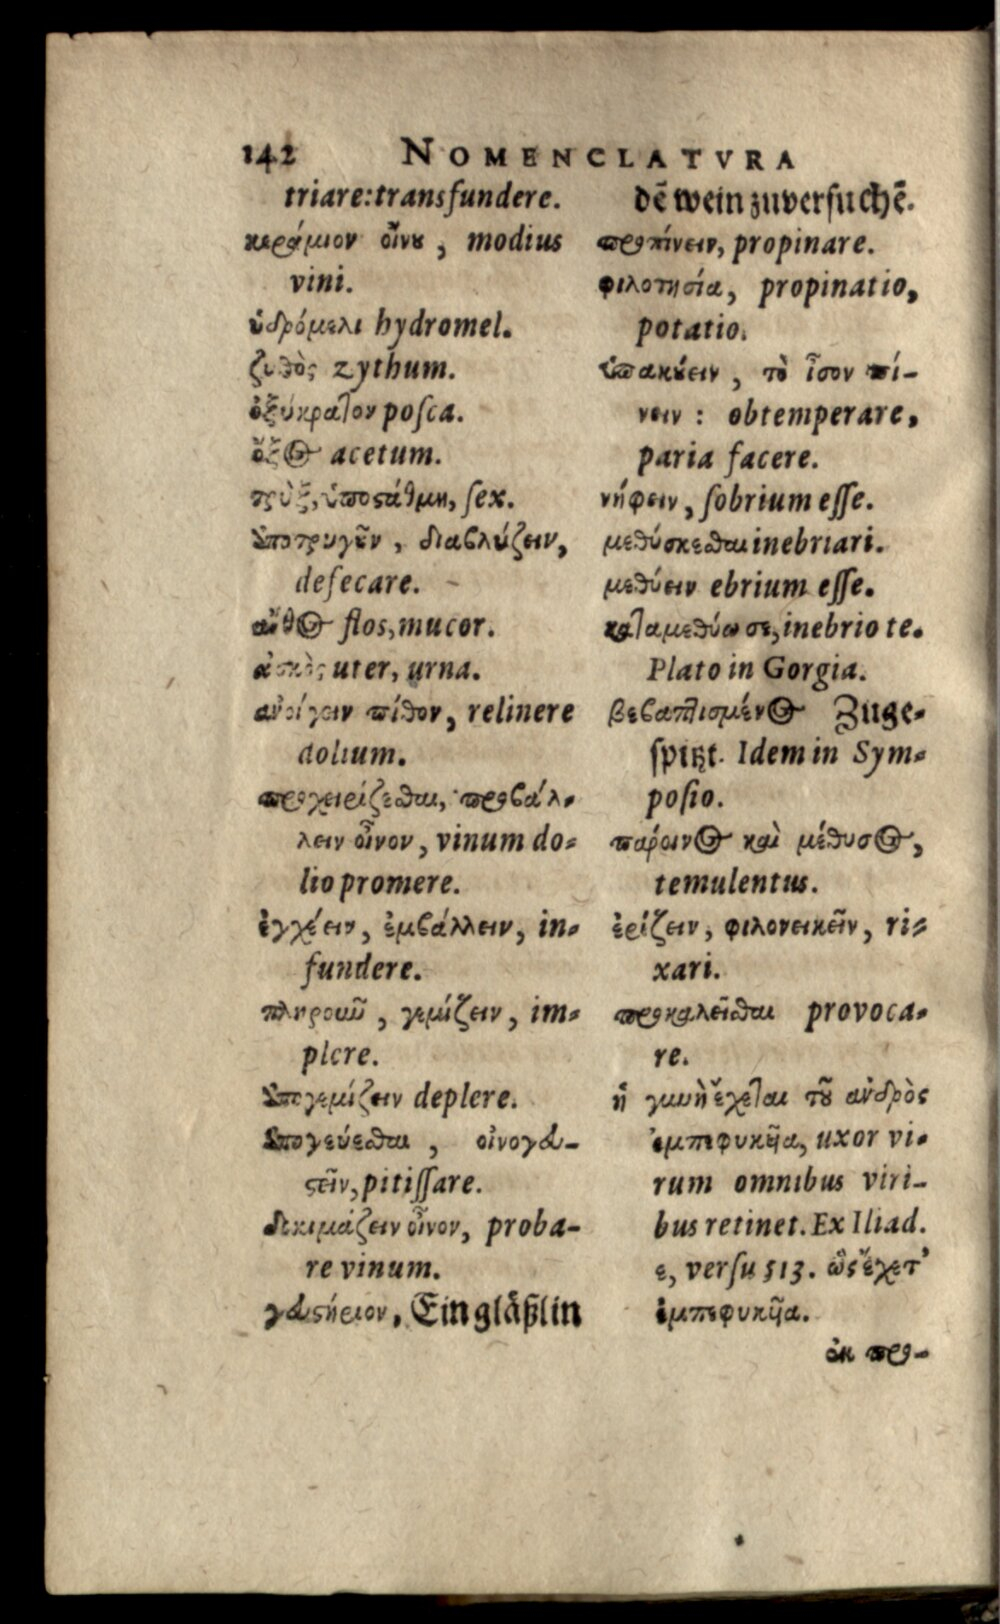 142 NOMENCLATVRA
triare: transfundere.
κεράμιον οἴνȣ, modius
vini.
ὑδρόμελι hydromel.
ζυθὸς zythum.
ὀξύκρατον posca.
ὄξος acetum.
τρὺξ, ὑποϛάθμη, fex.
ἀποτρυγᾶν, διαβλύζειν,
defecare.
ἄνθος flos, mucor.
ἀσκὸς uter, urna.
ἀνοίγειν πίθον, relinere
dolium.
προχειρίζεσθαι, προβάλ-
λειν οἶνον, vinum do-
lio promere.
ἐγχέειν, ἐμβάλλειν, in-
fundere.
πληροῦν, γεμίζειν, im-
plere.
ἀπογεμίζειν deplere.
ἀπογεύεσθαι, οἰνογευ-
ϛεῖν, pitissare.
δοκιμάζειν οἶνον, proba-
re vinum.
γευϛήριον, Ein gläßlin
dē wein zuversuchē.
προπίνειν, propinare.
φιλοτησία, propinatio,
potatio.
ὑπακȣ́ειν, τὸ ἶσον πί-
νειν: obtemperare,
paria facere.
νήφειν, sobrium esse.
μεθύσκεσθαι inebriari.
μεθύειν ebrium esse.
καταμεθύω σε, inebrio te.
Plato in Gorgia.
βεβαπτισμένος Zuge-
spitzt. Idem in Sym-
posio.
πάροινος καὶ μέθυσος,
temulentus.
ἐρίζειν, φιλονεικεῖν, ri-
xari.
προκαλεῖσθαι provoca-
re.
ἡ γυνὴ ἔχεται τȣ͂ ἀνδρὸς
ἐμπεφυκῆα, uxor vi-
rum omnibus viri-
bus retinet. Ex Iliad.
ε, versu 513. ὣς ἔχετ'
ἐμπεφυκῆα.
ἐκ προ-